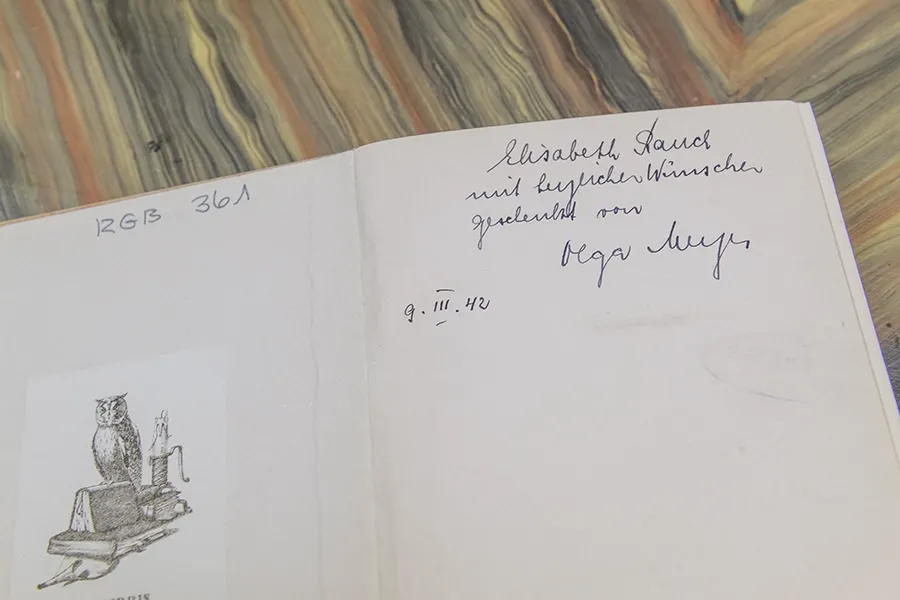 RGB 361
Elisabeth Rauch
mit herzlichen Wünschen
geschenkt von
Olga Meyer
9. III. 42